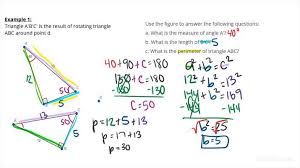 Example 1:
Triangle A'B'C' is the result of rotating triangle
ABC around point d.
Use the figure to answer the following questions:
a. What is the measure of angle A? 40°
b. What is the length of 5
c. What is the perimeter of triangle ABC?
12
13
50
5
40+90+C=180
130+C=180
-130 -130
C=50
p=12+5+13
p=17+13
p=30
a²+b²=c²
12²+b²=13²
144+b²=169
-144 -144
√b²=√25
b=5